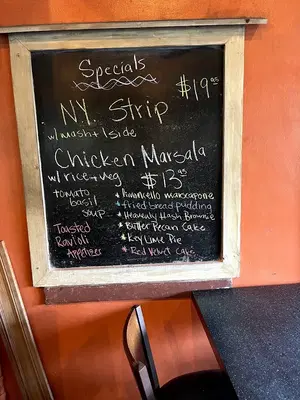 Specials
$19.95
N.Y. Strip
w/mash + 1 side
Chicken Marsala
w/rice + veg $13.95
tomato
basil
soup
Toasted
Ravioli
Appetizer
* Limoncello marscapone
* fried bread pudding
* Heavenly Hash Brownie
* Butter Pecan Cake
* Key Lime Pie
* Red Velvet Cake